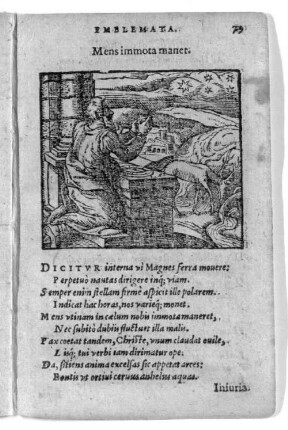 EMBLEMATA. 79
Mens immota manet.
DICITVR interna vi Magnes ferra mouere:
Perpetuò nautas dirigere inq; viam.
Semper enim stellam firmè aspicit ille polarem.
Indicat hac horas, nos varieq; monet.
Mens vtinam in cælum nobis immota maneret,
Nec subitò dubiis fluctuet illa malis.
Pax coëat tandem, Christe, vnum claudat ouile,
Lisq; tui verbi iam dirimatur ope.
Da, sitiens anima excelsas sic appetat arces:
Fontis vt ortiui ceruus anhelus aquas.
Iniuria.